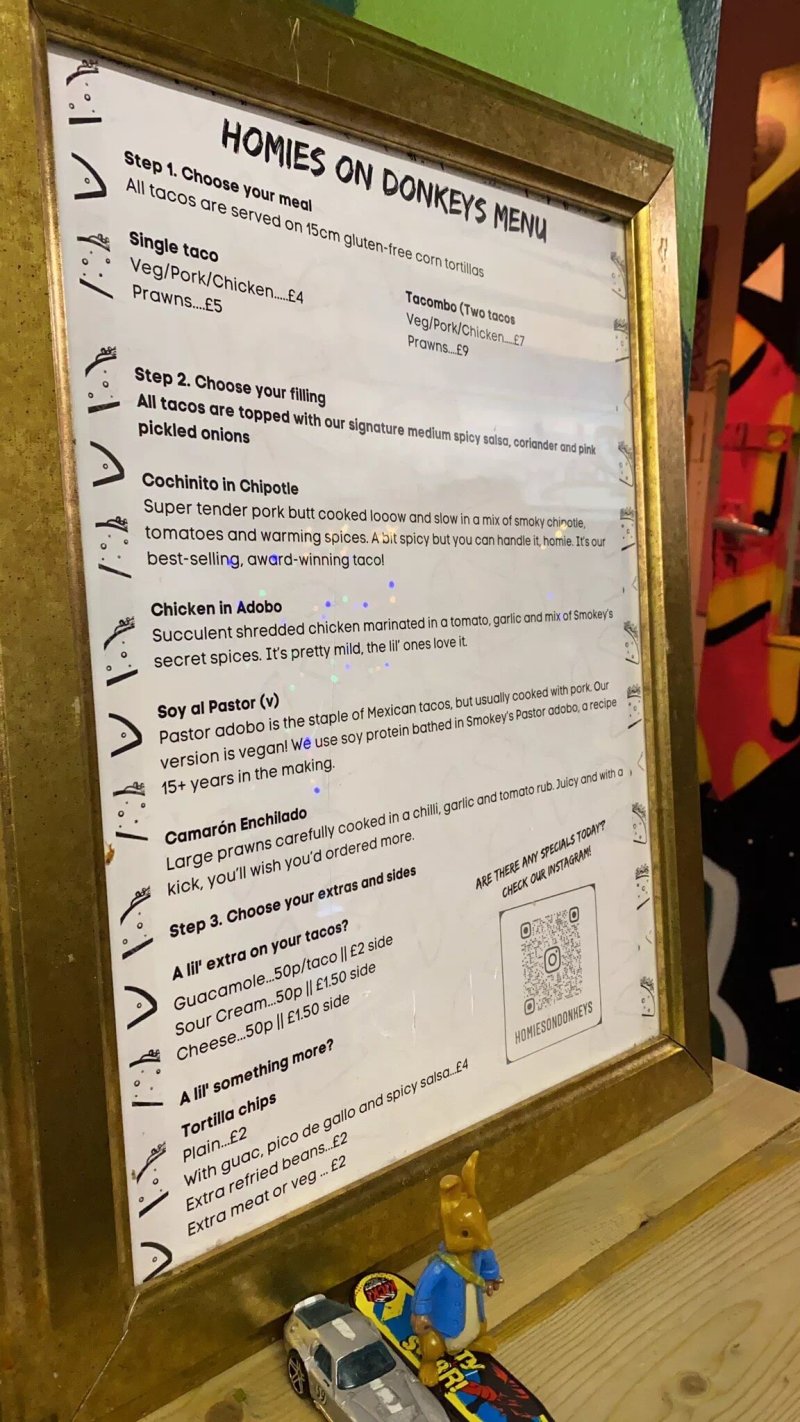 HOMIES ON DONKEYS MENU
Step 1. Choose your meal
All tacos are served on 15cm gluten-free corn tortillas
Single taco
Veg/Pork/Chicken.....£4
Prawns....£5
Tacombo (Two tacos
Veg/Pork/Chicken....£7
Prawns...£9
Step 2. Choose your filling
All tacos are topped with our signature medium spicy salsa, coriander and pink
pickled onions
Cochinito in Chipotle
Super tender pork butt cooked looow and slow in a mix of smoky chipotle,
tomatoes and warming spices. A bit spicy but you can handle it, homie. It's our
best-selling, award-winning taco!
Chicken in Adobo
Succulent shredded chicken marinated in a tomato, garlic and mix of Smokey's
secret spices. It's pretty mild, the lil' ones love it.
Soy al Pastor (v)
Pastor adobo is the staple of Mexican tacos, but usually cooked with pork. Our
version is vegan! We use soy protein bathed in Smokey's Pastor adobo, a recipe
15+ years in the making.
Camarón Enchilado
Large prawns carefully cooked in a chilli, garlic and tomato rub. Juicy and with a
kick, you'll wish you'd ordered more.
Step 3. Choose your extras and sides
A lil' extra on your tacos?
Guacamole...50p/taco || £2 side
Sour Cream...50p || £1.50 side
Cheese...50p || £1.50 side
ARE THERE ANY SPECIALS TODAY?
CHECK OUR INSTAGRAM!
HOMIESONDONKEYS
A lil' something more?
Tortilla chips
Plain...£2
With guac, pico de gallo and spicy salsa...£4
Extra refried beans...£2
Extra meat or veg ... £2